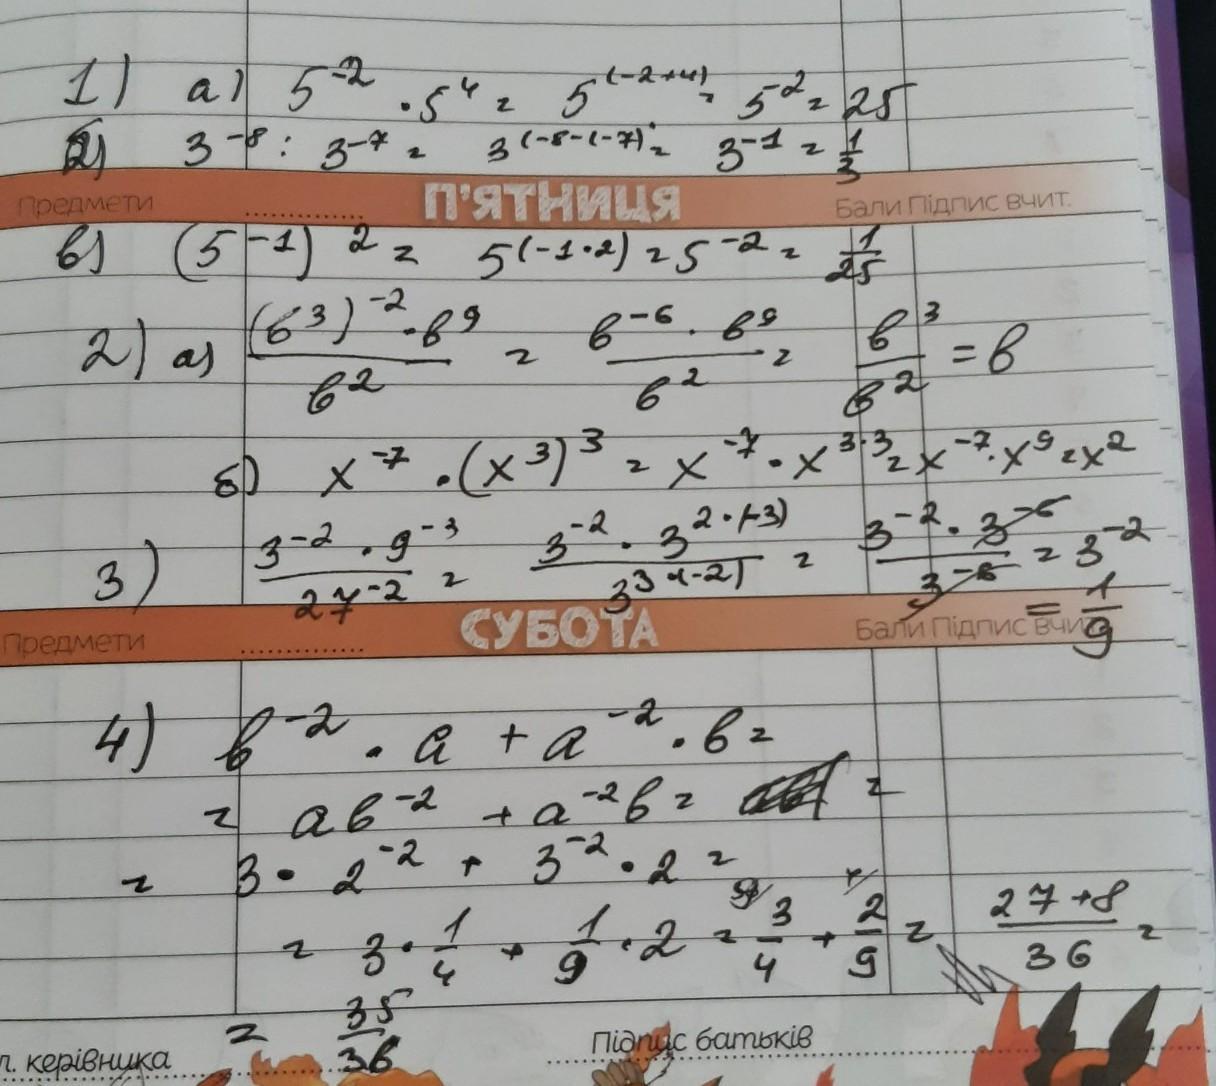 1) а) 5^-2 · 5^4 = 5^(-2+4) = 5^-2 = 25
б) 3^-8 : 3^-7 = 3^(-8-(-7) = 3^-1 = 1/3
Предмети П'ЯТНИЦЯ Бали Підпис вчит.
в) (5^-1)^2 = 5^(-1·2) = 5^-2 = 1/25
2) а) (в^3)^-2 · в^9 / в^2 = в^-6 · в^9 / в^2 = в^3 / в^2 = в
б) x^-7 · (x^3)^3 = x^-7 · x^3·3 = x^-7 · x^9 = x^2
3) 3^-2 · 9^-3 / 27^-2 = 3^-2 · 3^2·(-3) / 3^3·(-2) = 3^-2 · 3^-6 / 3^-6 = 3^-2
= 1/9
Предмети СУБОТА Бали Підпис вчит.
4) в^-2 · а + а^-2 · в =
= ав^-2 + а^-2в = =
= 3 · 2^-2 + 3^-2 · 2 =
= 3 · 1/4 + 1/9 · 2 = 3/4 + 2/9 = 27+8 / 36 =
= 35/36
керівника Підпис батьків